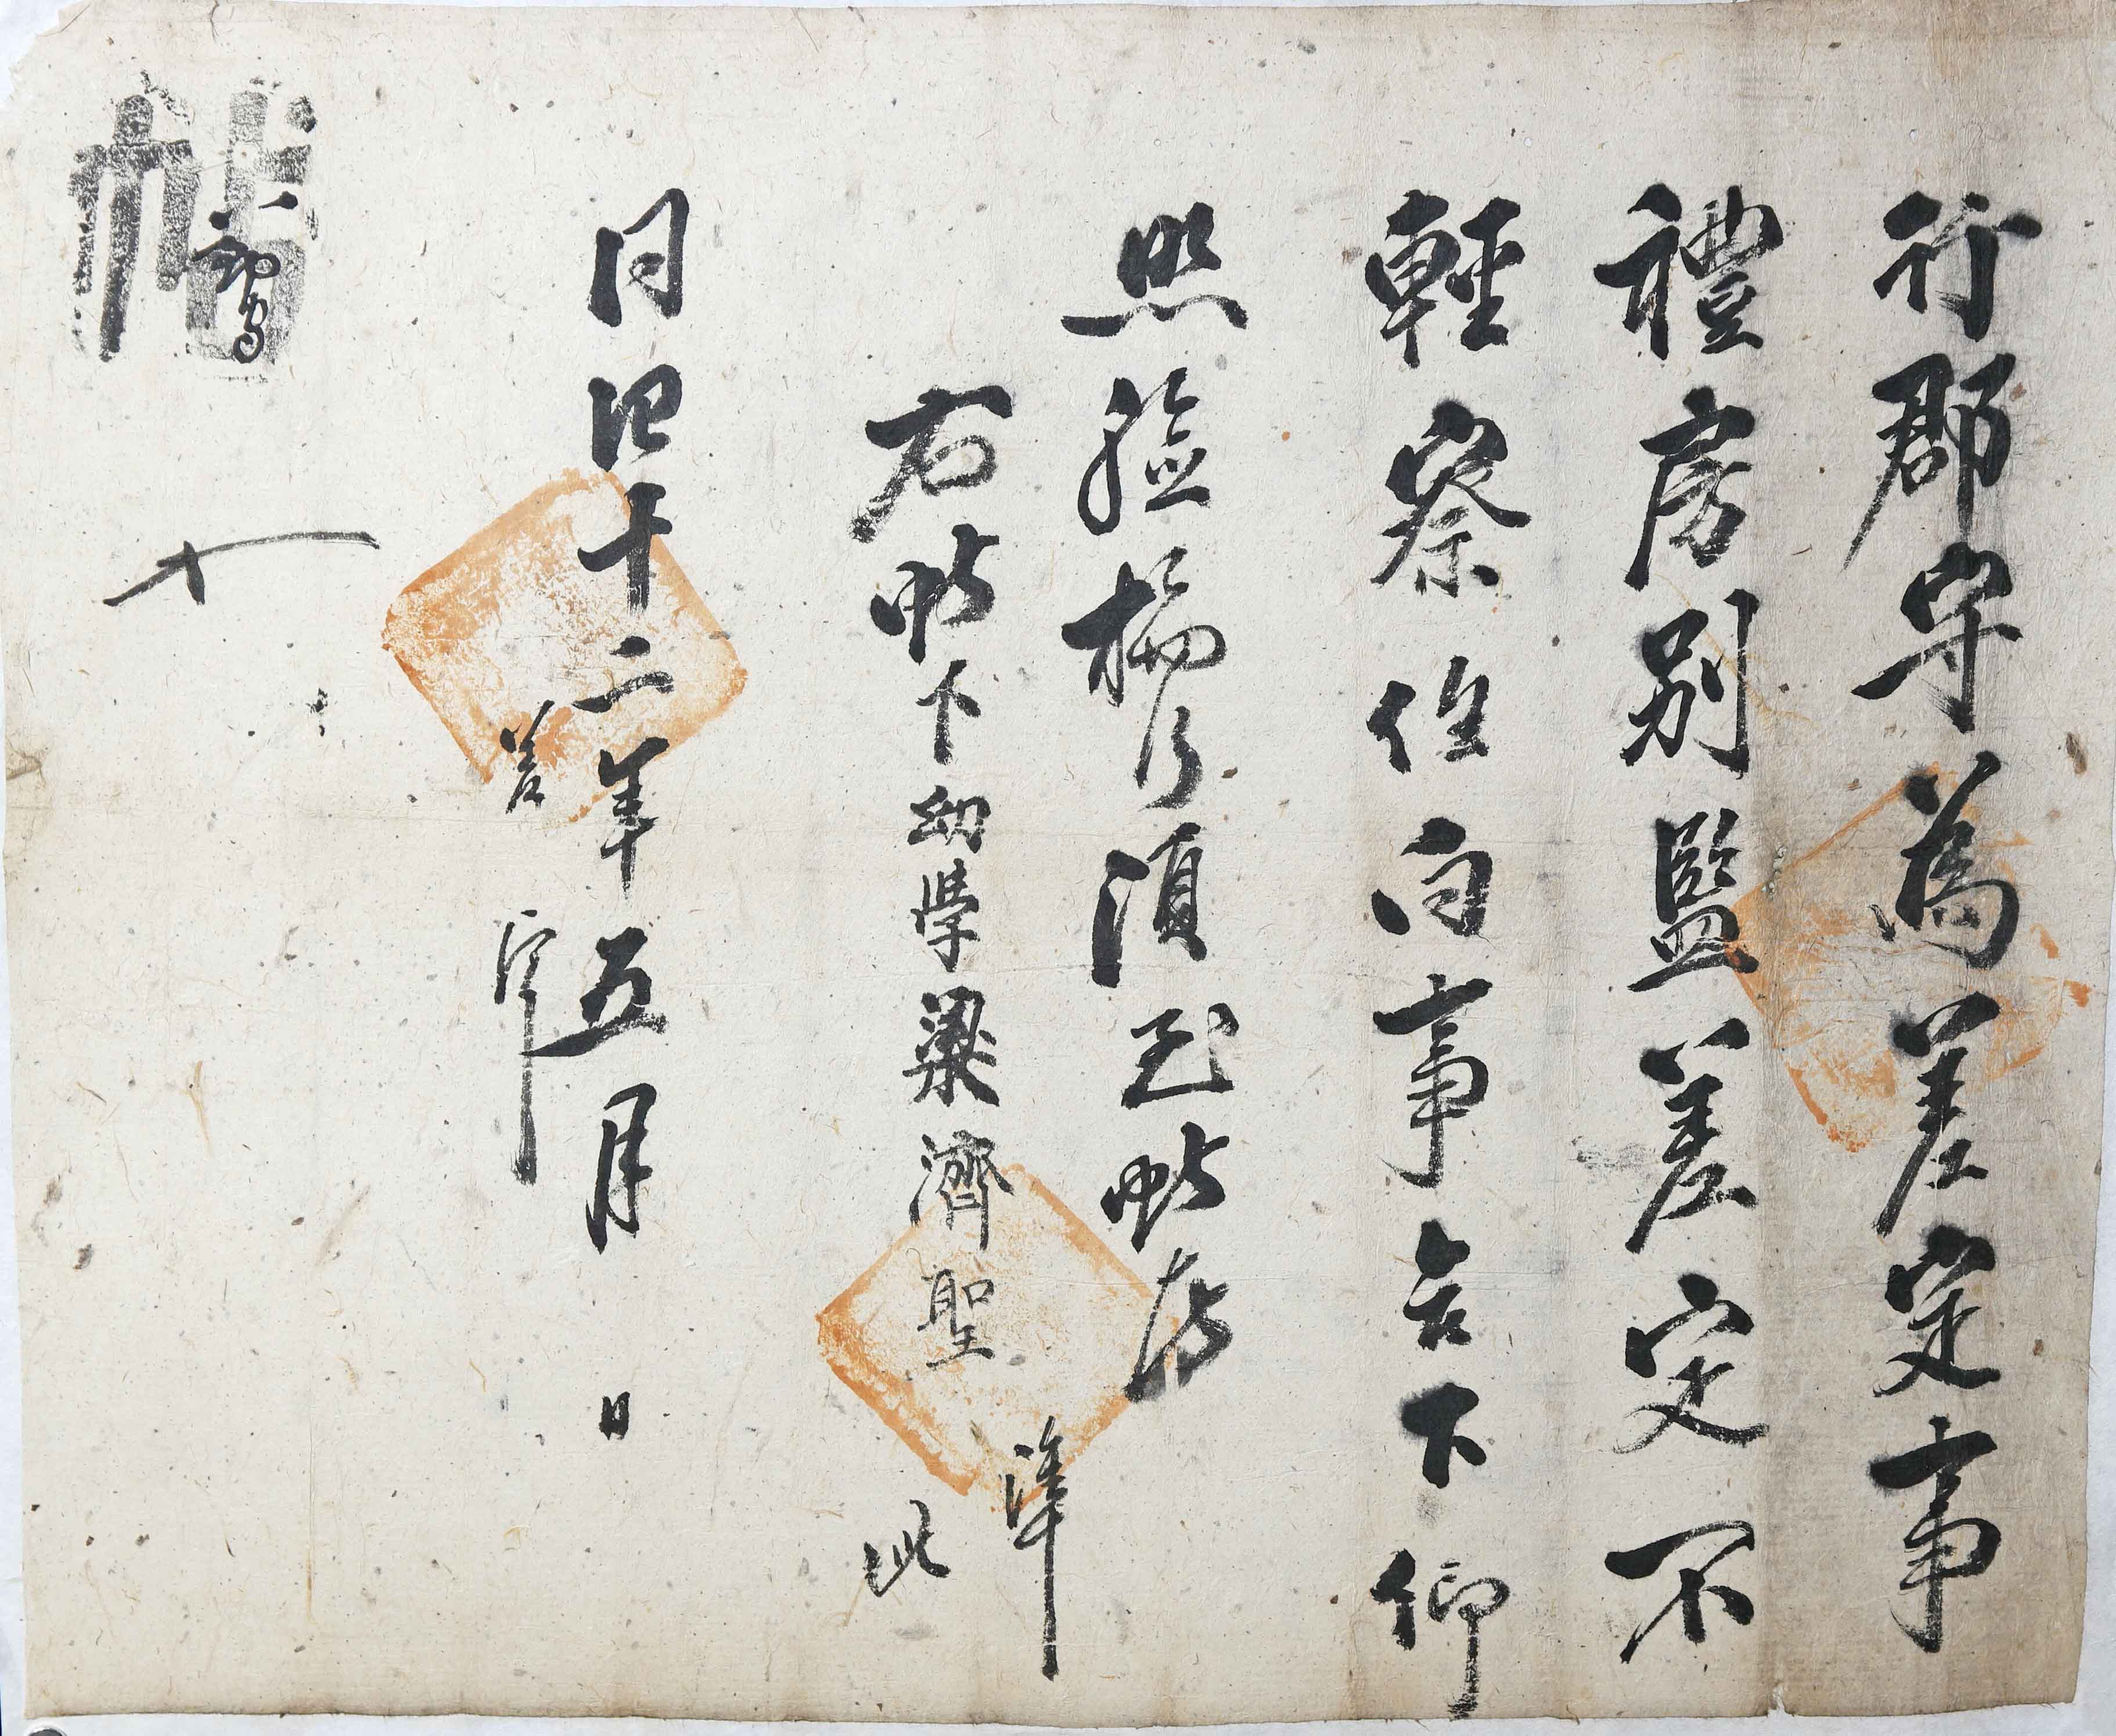 行郡守爲差定事
禮房別監差定不
輕察任向事合下仰
照驗施行須至帖者
右帖下幼學梁濟聖
準
此
同治十二年五月 日
差定
帖